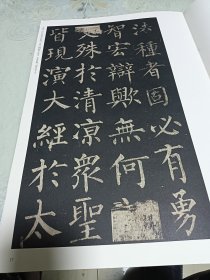 法種者固必有勇
智宏辯歟無何
文殊於清涼衆聖
皆現演大經於太